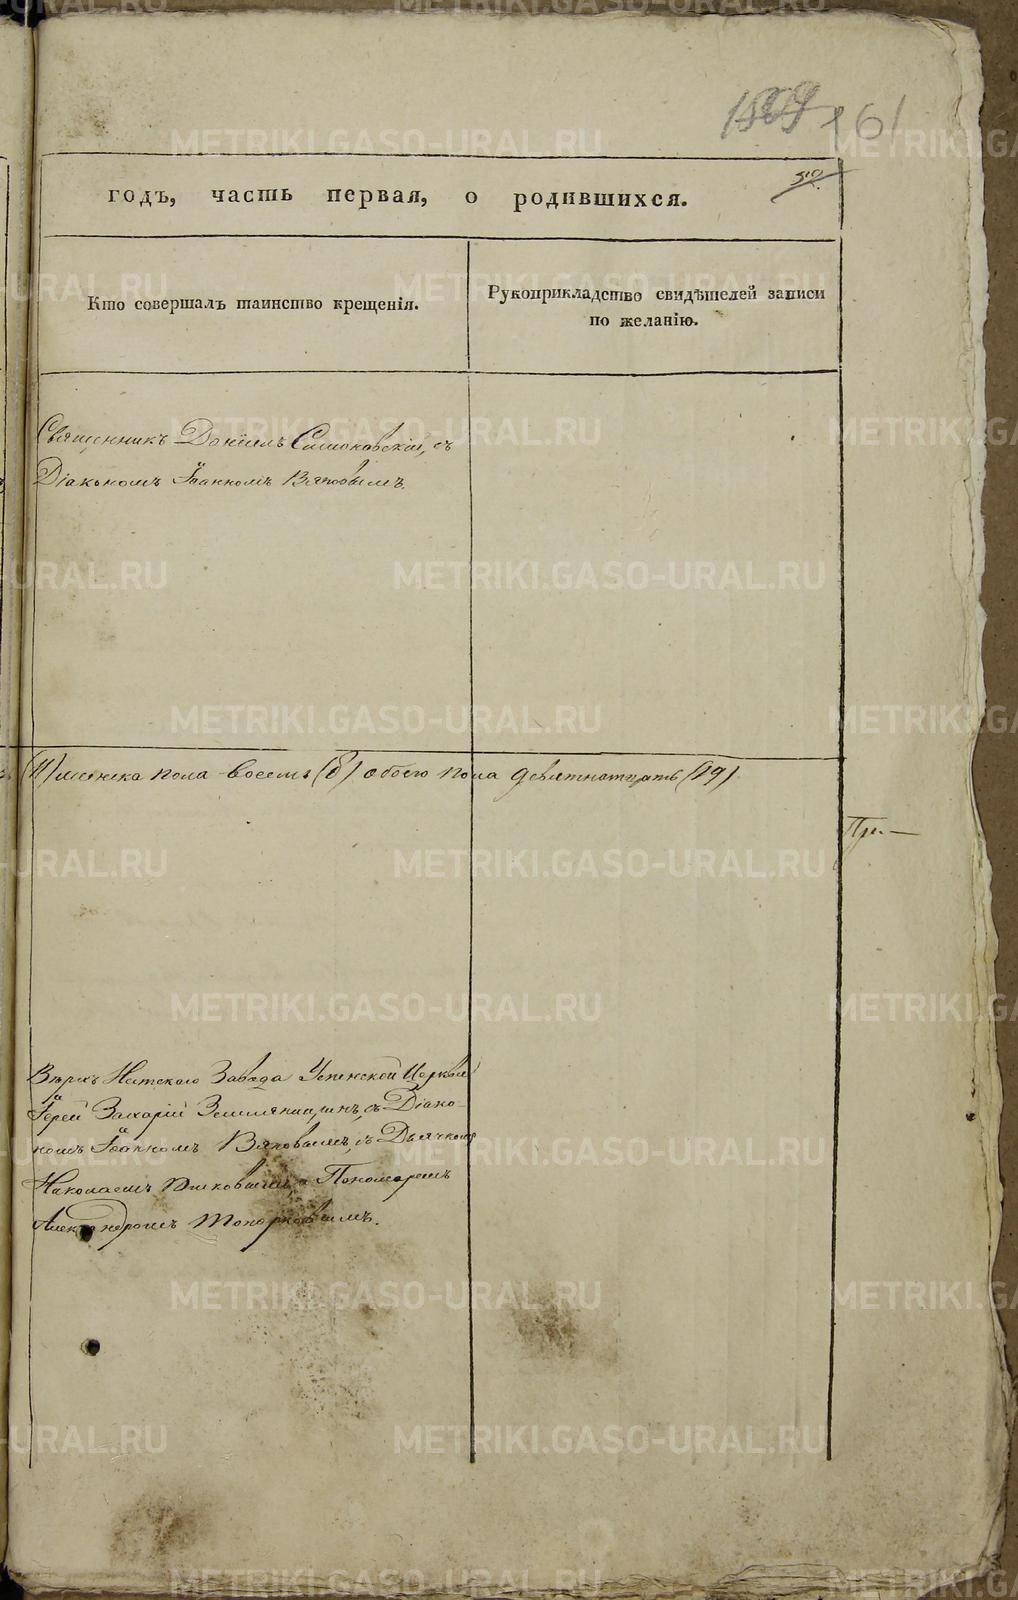 161
510.
годъ, часть первая, о родившихся.
Кто совершалъ таинство крещенія.
Рукоприкладство свидѣтелей записи
по желанію.
Священникъ Даніилъ Симоновскій, съ
Діакономъ Іоанномъ Вяповымъ.
(11) женска пола восемь (8) обоего пола девятнатцать (19)
При-
Верхъ Нейтскаго Завода Успенской Церкви
Іерей Захарій Земляницынъ, съ Діако-
номъ Іоанномъ Вяповымъ, съ Дьячкомъ
Николаемъ и Пономаремъ
Александромъ Топорковымъ.
METRIKI.GASO-URAL.RU